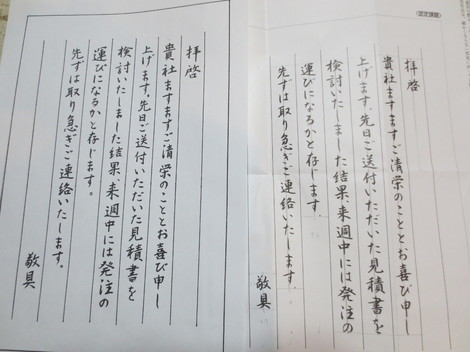 認定課題
拝啓
貴社ますますご清栄のこととお喜び申し
上げます。先日ご送付いただいた見積書を
検討いたしました結果、来週中には発注の
運びになるかと存じます。
先ずは取り急ぎご連絡いたします。
敬具
拝啓
貴社ますますご清栄のこととお喜び申し
上げます。先日ご送付いただいた見積書を
検討いたしました結果、来週中には発注の
運びになるかと存じます。
先ずは取り急ぎご連絡いたします。
敬具